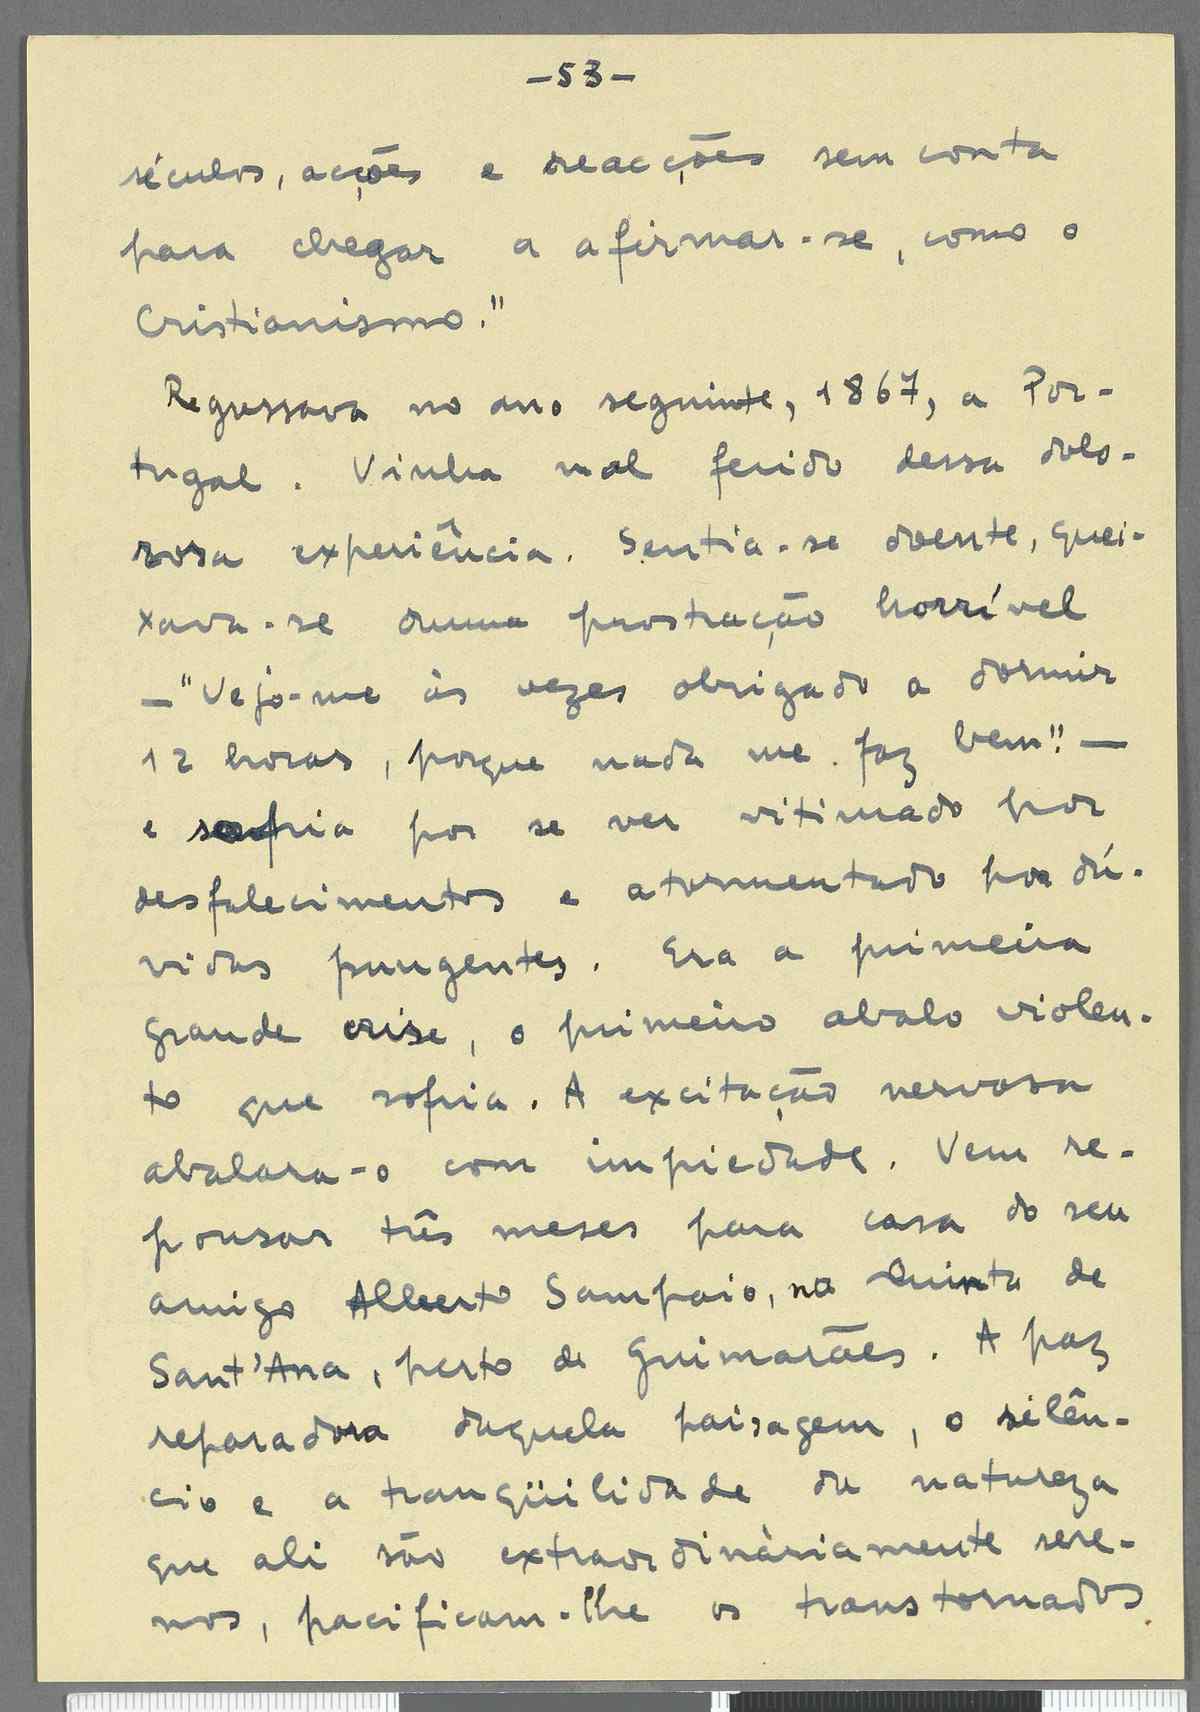 -53-
séculos, acções e reacções sem conta
para chegar a afirmar-se, como o
Cristianismo."
Regressava no ano seguinte, 1867, a Por-
tugal. Vinha mal ferido dessa dolo-
rosa experiência. Sentia-se doente, quei-
xava-se duma prostração horrível
—"Vejo-me às vezes obrigado a dormir
12 horas, porque nada me faz bem"! —
e sofria por se ver vitimado por
desfalecimentos e atormentado por dú-
vidas pungentes. Era a primeira
grande crise, o primeiro abalo violen-
to que sofria. A excitação nervosa
abalara-o com impiedade. Vem re-
pousar três meses para casa do seu
amigo Alberto Sampaio, na Quinta de
Sant'Ana, perto de Guimarães. A paz
reparadora daquela paisagem, o silên-
cio e a tranqüilidade da natureza
que ali são extraordinàriamente sere-
nos, pacificam-lhe os transtornados